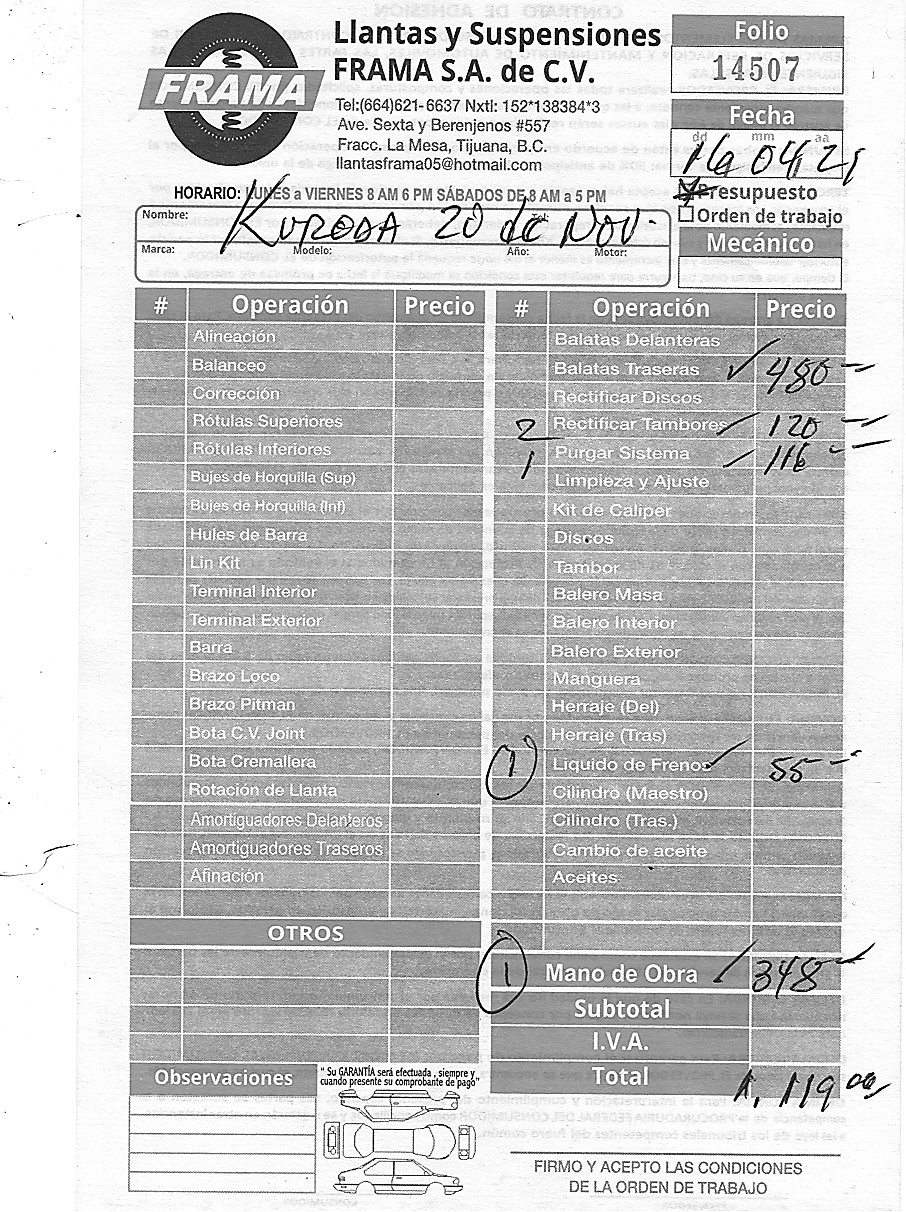 FRAMA
Llantas y Suspensiones
FRAMA S.A. de C.V.
Tel:(664)621-6637 Nxtl: 152*138384*3
Ave. Sexta y Berenjenos #557
Fracc. La Mesa, Tijuana, B.C.
llantasframa05@hotmail.com
HORARIO: LUNES a VIERNES 8 AM 6 PM SÁBADOS DE 8 AM a 5 PM
Folio
14507
Fecha
dd mm aa
16 04/21
Presupuesto
Orden de trabajo
Mecánico
Nombre: KURODA 20 de NOV. Tel:
Marca: Modelo: Año: Motor:
# Operación Precio
Alineación
Balanceo
Corrección
Rótulas Superiores
Rótulas Inferiores
Bujes de Horquilla (Sup)
Bujes de Horquilla (Inf)
Hules de Barra
Lin Kit
Terminal Interior
Terminal Exterior
Barra
Brazo Loco
Brazo Pitman
Bota C.V. Joint
Bota Cremallera
Rotación de Llanta
Amortiguadores Delanteros
Amortiguadores Traseros
Afinación
OTROS
Observaciones
" Su GARANTÍA será efectuada , siempre y
cuando presente su comprobante de pago"
# Operación Precio
Balatas Delanteras
Balatas Traseras ✓ 480
Rectificar Discos
2 Rectificar Tambores ✓ 120
1 Purgar Sistema ✓ 116
Limpieza y Ajuste
Kit de Caliper
Discos
Tambor
Balero Masa
Balero Interior
Balero Exterior
Manguera
Herraje (Del)
Herraje (Tras)
1 Liquido de Frenos ✓ 55
Cilindro (Maestro)
Cilindro (Tras.)
Cambio de aceite
Aceites
1 Mano de Obra ✓ 348
Subtotal
I.V.A.
Total 1,119 00
FIRMO Y ACEPTO LAS CONDICIONES
DE LA ORDEN DE TRABAJO